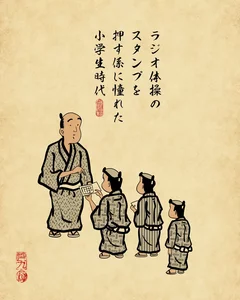 ラジオ体操の
スタンプを
押す係に憧れた
小学生時代